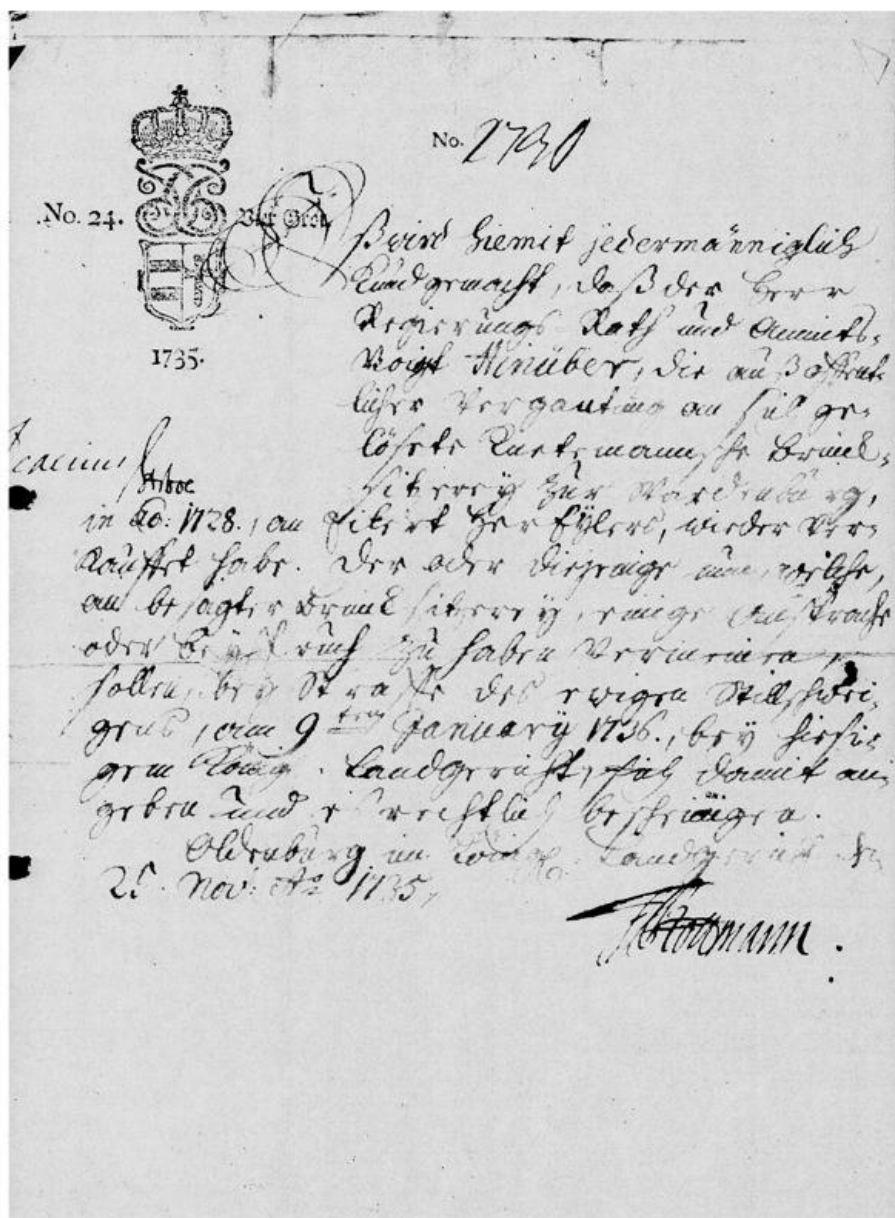 No. 2730
No. 24. Vier Grot.
1735.
Es wird hiemit jedermänniglich
Kund gemacht, daß der Herr
Regierungs Rath und Ammts-
Voigt Hinüber, die auß öffent-
licher Vergantung an sich ge-
lösete Brinck-
sitzerey zur Wardenburg,
in Ao: 1728., an Eylers, wieder ver-
kauffet habe. Der oder diejenige nun, welche,
an besagter Brincksitzerey, einige Ansprache
oder Beyspruch zu haben vermeinen,
sollen, bey Straffe des ewigen Stillschwei-
gens, am 9ten January 1736., bey hiesi-
gem Königl. Landgericht, sich damit an-
geben und es rechtlich bescheinigen.
Oldenburg im Königl. Landgericht den
25. Nov: Ao 1735,